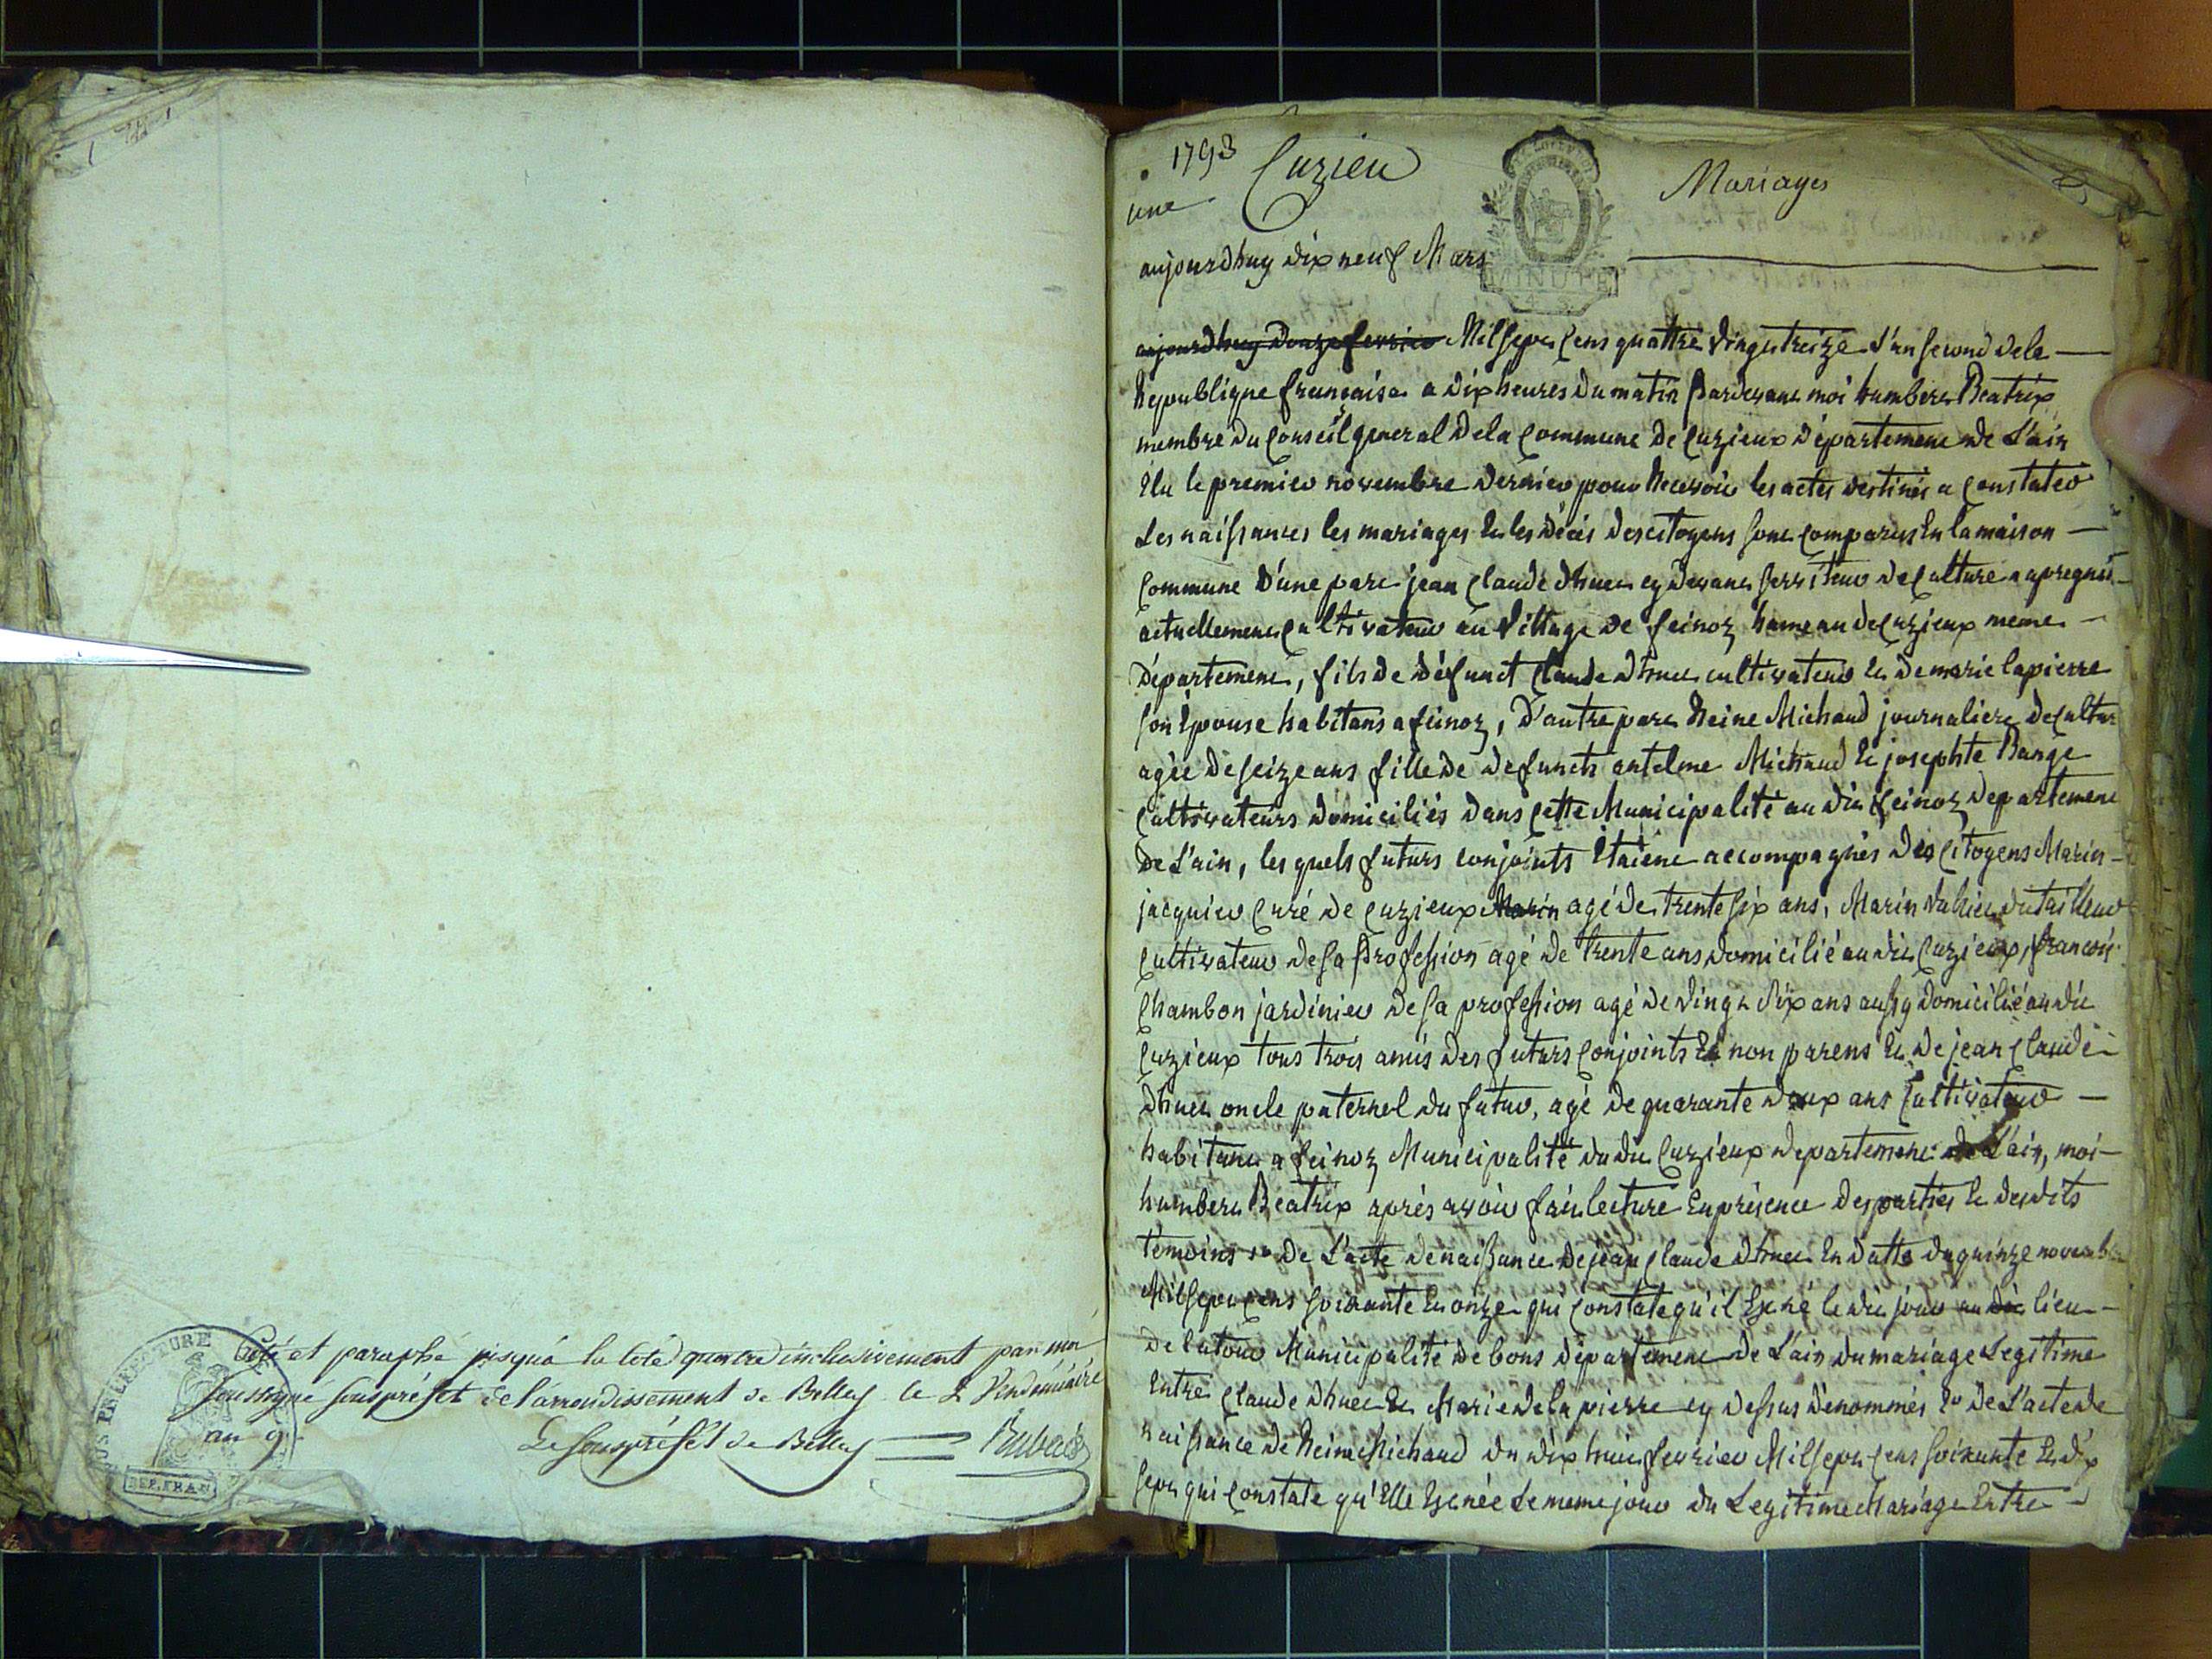 Coté et paraphé jusqu'a la cote quatre inclusivement par moi
soussigné sous préfet de l'arrondissement de Belley le 2 Vendémiaire
an 9.
Le sous préfet de Belley
SOUS PREFECTURE
REP. FRAN
1793 Cuzieu Mariages
une
MINUTE
4 S.
aujourdhuy dix neuf Mars
aujourdhuy douze fevrier Mil sept cens quattre vingt treize L'an second de la
Republique francaise a dix heures du matin pardevant moi humbert Beatrix
membre du Conseil general de la Commune de Cuzieux département de L'ain
Elu le premier novembre dernier pour Recevoir les actes destinés a Constater
Les naissances les mariages et les décés des citoyens sont comparus En la maison
Commune D'une part jean Claude dhuet cy devant serviteur de Culture a
actuellement cultivateur au village de feinoz hameau de Cuzieux meme
Département, fils de défunct Claude dhuet cultivateur et de marie lapierre
son Epouse habitans a feinoz, D'autre part Reine Michaud journaliere de Cultur
agée de seize ans fille de defuncts antelme Michaud et josephte Barge
Cultivateurs domiciliés dans Cette Municipalité au dit feinoz departement
de L'ain, les quels futurs conjoints Etaient accompagnés des Citoyens Marin
jacquier Curé de Cuzieux Marin agé de trente six ans, Marin dutailleur
Cultivateur de sa Profession agé de trente ans domicilié au dit Cuzieux, francois
Chambon jardinier de sa profession agé de vingt six ans aussy domicilié au dit
Cuzieux tous trois amis des futurs Conjoints Et non parens Et de jean Claude
dhuet oncle paternel du futur, agé de quarante deux ans Cultivateur
habitant a feinoz Municipalité du dit Cuzieux departement de L'ain, moi
humbert Beatrix aprés avoir fait lecture En présence des parties et desdits
temoins 1º de L'acte de naissance de jean Claude dhuet En datte du quinze novembre
Mil sept cens soixante et onze qui Constate qu'il Est né le dit jour au dit lieu
de latour Municipalité de bons département de L'ain du mariage Legitime
Entre Claude dhuet Et Marie de lapierre cy dessus dénommés 2º de L'acte de
naissance de Reine Michaud du dix huit fevrier Mil sept cens soixante Et dix
sept qui Constate qu'Elle Est née Le meme jour du Legitime Mariage Entre